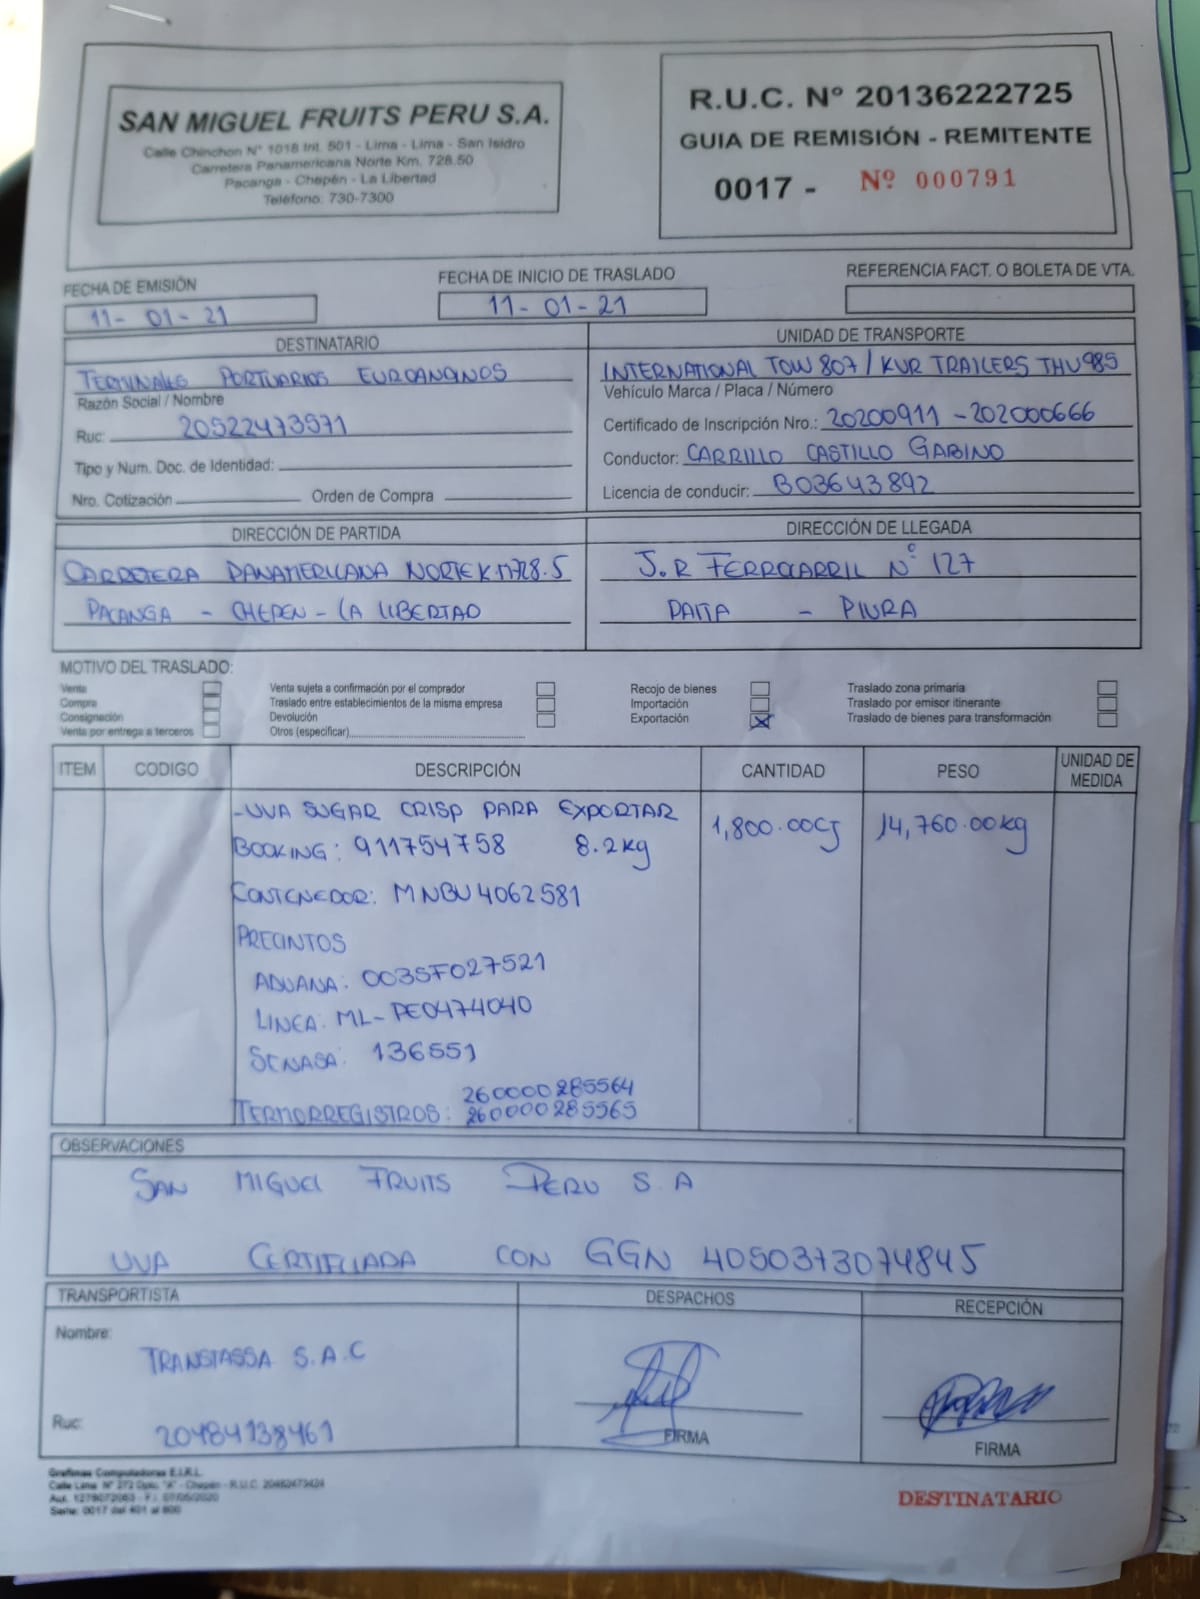 SAN MIGUEL FRUITS PERU S.A.
Calle Chinchon N° 1018 Int. 501 - Lima - Lima - San Isidro
Carretera Panamericana Norte Km. 728.50
Pacanga - Chepén - La Libertad
Teléfono: 730-7300
R.U.C. N° 20136222725
GUIA DE REMISIÓN - REMITENTE
0017 - Nº 000791
FECHA DE EMISIÓN
11-01-21
FECHA DE INICIO DE TRASLADO
11-01-21
REFERENCIA FACT. O BOLETA DE VTA.
DESTINATARIO
TERMINALES PORTUARIOS EUROANDINOS
Razón Social / Nombre
Ruc: 20522473571
Tipo y Num. Doc. de Identidad:
Nro. Cotización Orden de Compra
UNIDAD DE TRANSPORTE
INTERNATIONAL TOW 807 / KUR TRAILERS THU 985
Vehículo Marca / Placa / Número
Certificado de Inscripción Nro.: 20200911 - 202000666
Conductor: CARRILLO CASTILLO GABINO
Licencia de conducir: B03643892
DIRECCIÓN DE PARTIDA
CARRETERA PANAMERICANA NORTE KM 728.5
PACANGA - CHEPEN - LA LIBERTAD
DIRECCIÓN DE LLEGADA
J.R FERROCARRIL N° 127
PAITA - PIURA
MOTIVO DEL TRASLADO:
Venta
Compra
Consignación
Venta por entrega a terceros
Venta sujeta a confirmación por el comprador
Traslado entre establecimientos de la misma empresa
Devolución
Otros (especificar)
Recojo de bienes
Importación
Exportación X
Traslado zona primaria
Traslado por emisor itinerante
Traslado de bienes para transformación
ITEM CODIGO DESCRIPCIÓN CANTIDAD PESO UNIDAD DE MEDIDA
-UVA SUGAR CRISP PARA EXPORTAR 1,800.00CJ 14,760.00kg
BOOKING: 911754758 8.2kg
CONTENEDOR: MNBU4062581
PRECINTOS
ADUANA: 0035F027521
LINEA: ML-PE0474040
SENASA: 136551
260000285564
TERMORREGISTROS: 260000285565
OBSERVACIONES
SAN MIGUEL FRUITS PERU S.A
UVA CERTIFICADA CON GGN 4050373074845
TRANSPORTISTA
Nombre:
TRANSTASSA S.A.C
Ruc: 20484138461
DESPACHOS
FIRMA
RECEPCIÓN
FIRMA
Grafimas Computadoras E.I.R.L.
Serie: 0017 del 401 al 800
DESTINATARIO